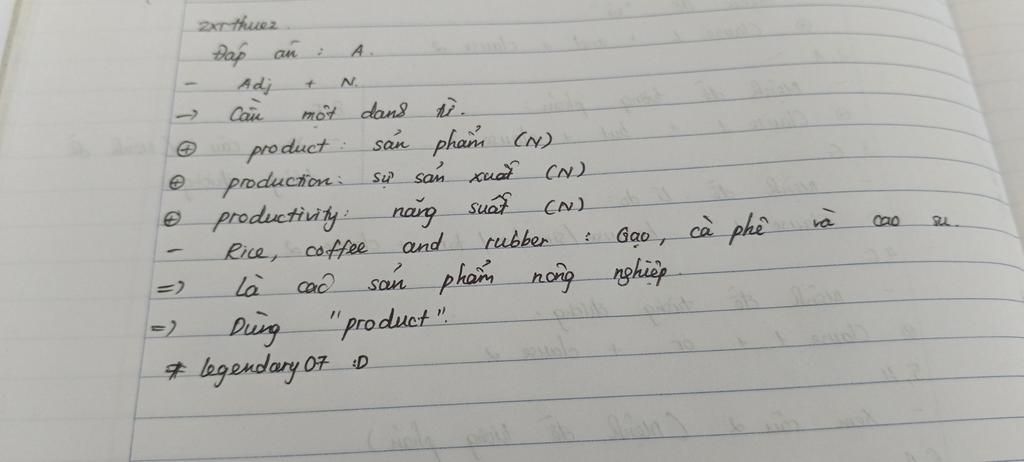 zxrthuez.
Đáp án : A.
- Adj + N.
→ Cần một danh từ.
⊕ product : sản phẩm (N)
⊕ production : sự sản xuất (N)
⊕ productivity : năng suất (N)
- Rice, coffee and rubber : Gạo, cà phê và cao su.
=> là các sản phẩm nông nghiệp.
=> Dùng "product".
* legendary07 :D